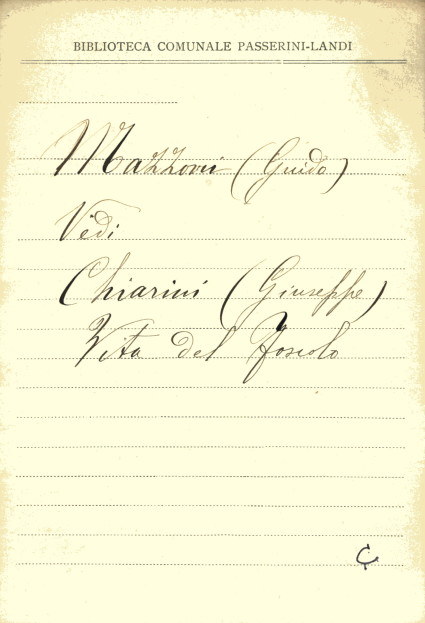 BIBLIOTECA COMUNALE PASSERINI-LANDI
Mazzoni (Guido)
Vedi
Chiarini (Giuseppe)
Vita del Foscolo
Ç